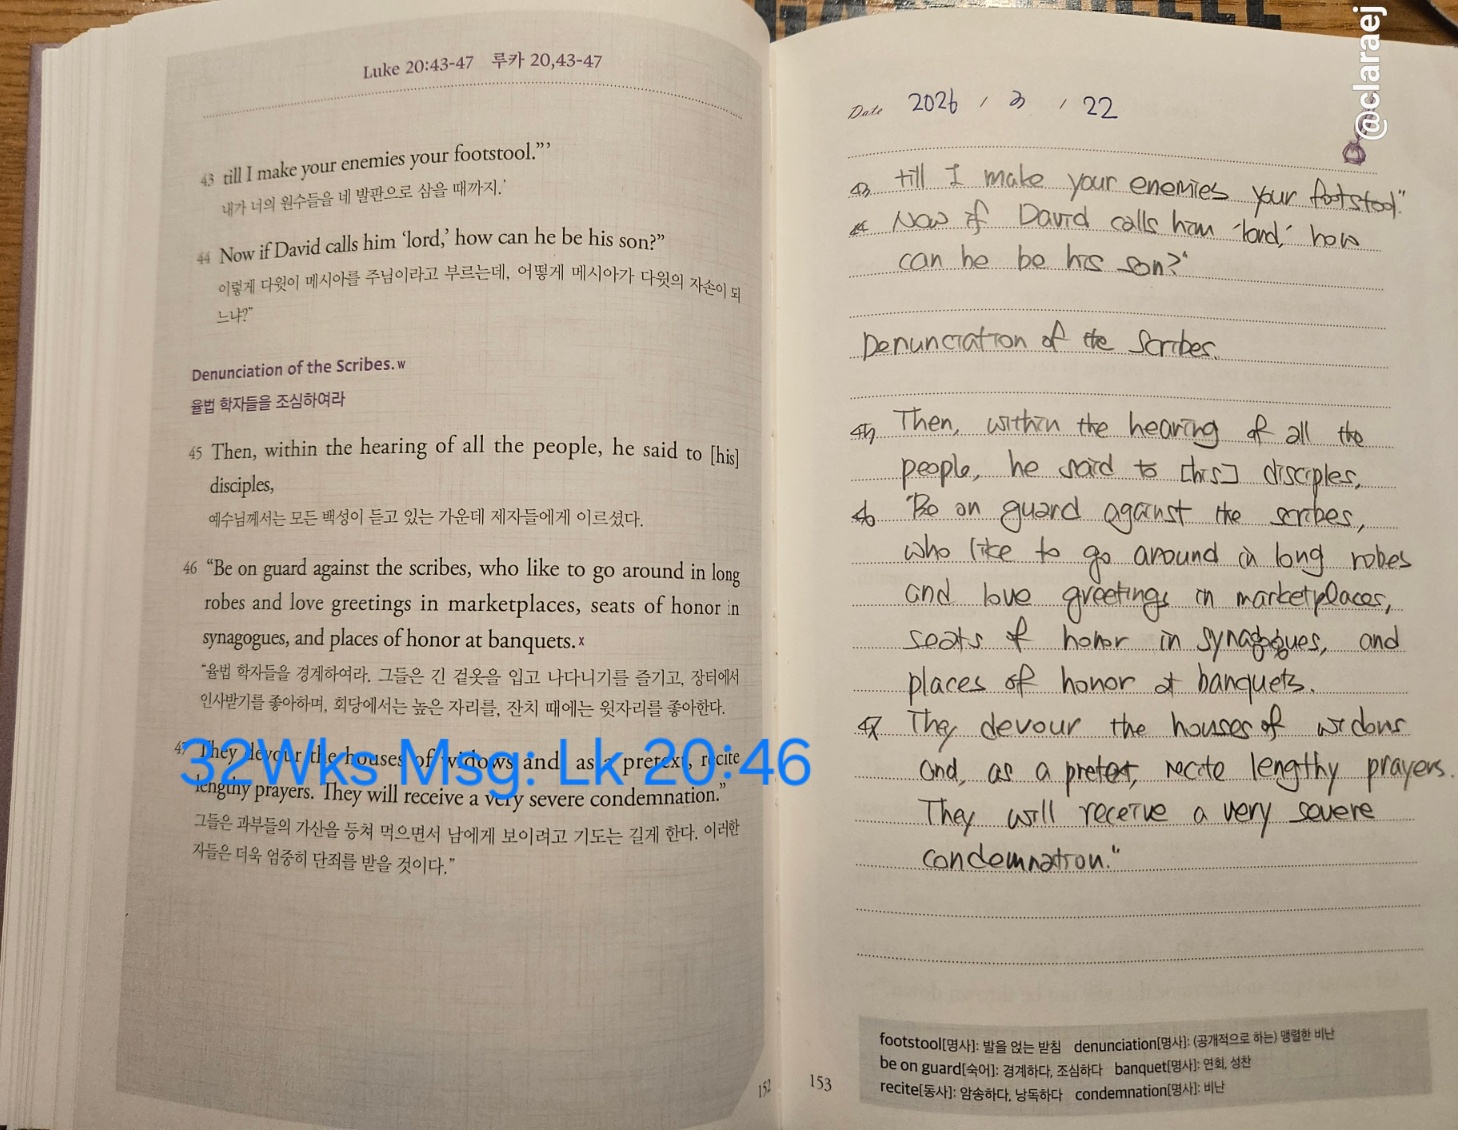 Luke 20:43-47 루카 20,43-47
43 till I make your enemies your footstool.”’
내가 너의 원수들을 네 발판으로 삼을 때까지.’
44 Now if David calls him ‘lord,’ how can he be his son?”
이렇게 다윗이 메시아를 주님이라고 부르는데, 어떻게 메시아가 다윗의 자손이 되
느냐?”
Denunciation of the Scribes. w
율법 학자들을 조심하여라
45 Then, within the hearing of all the people, he said to [his]
disciples,
예수님께서는 모든 백성이 듣고 있는 가운데 제자들에게 이르셨다.
46 “Be on guard against the scribes, who like to go around in long
robes and love greetings in marketplaces, seats of honor in
synagogues, and places of honor at banquets. x
“율법 학자들을 경계하여라. 그들은 긴 겉옷을 입고 나다니기를 즐기고, 장터에서
인사받기를 좋아하며, 회당에서는 높은 자리를, 잔치 때에는 윗자리를 좋아한다.
47 They devour the houses of widows and, as a pretext, recite
lengthy prayers. They will receive a very severe condemnation.”
32Wks Msg: Lk 20:46
그들은 과부들의 가산을 등쳐 먹으면서 남에게 보이려고 기도는 길게 한다. 이러한
자들은 더욱 엄중히 단죄를 받을 것이다.”
152
@claraej
Date 2026 / 3 / 22
43 till I make your enemies your footstool."
44 Now if David calls him 'lord,' how
can he be his son?"
Denunciation of the Scribes.
45 Then, within the hearing of all the
people, he said to [his] disciples,
46 "Be on guard against the scribes,
who like to go around in long robes
and love greetings in marketplaces,
seats of honor in synagogues, and
places of honor at banquets.
47 They devour the houses of widows
and, as a pretext, recite lengthy prayers.
They will receive a very severe
condemnation."
footstool[명사]: 발을 얹는 받침 denunciation[명사]: (공개적으로 하는) 맹렬한 비난
be on guard[숙어]: 경계하다, 조심하다 banquet[명사]: 연회, 성찬
recite[동사]: 암송하다, 낭독하다 condemnation[명사]: 비난
153